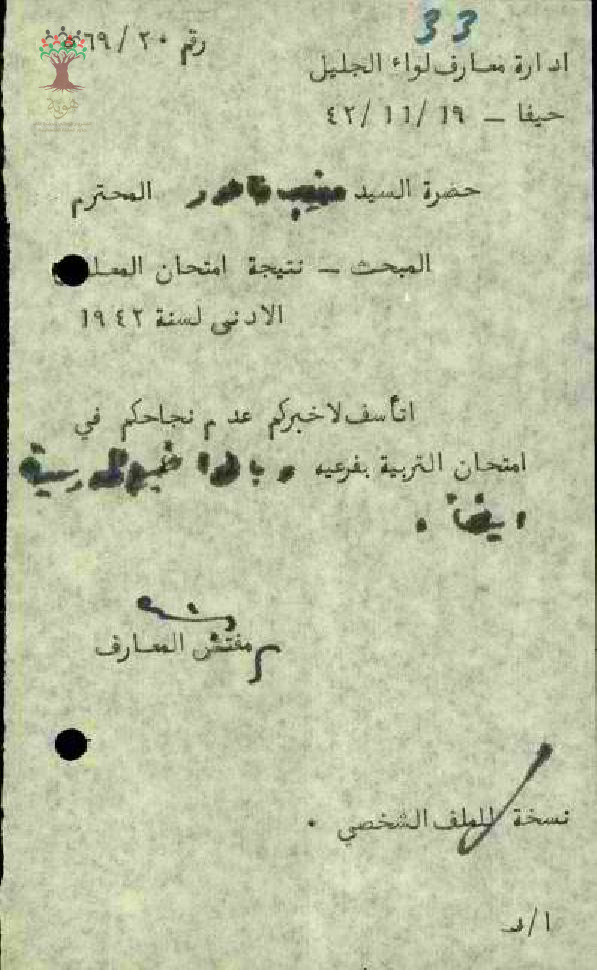 33
رقم ٢٠/٥٦٩
ادارة معارف لواء الجليل
حيفا – ١٩/١١/٤٢
حضرة السيد منيب المحترم
المبحث – نتيجة امتحان
الادنى لسنة ١٩٤٢
اتأسف لاخبركم عدم نجاحكم في
امتحان التربية بفرعيه
ايضا .
مفتش المعارف
نسخة للملف الشخصي .
هوية